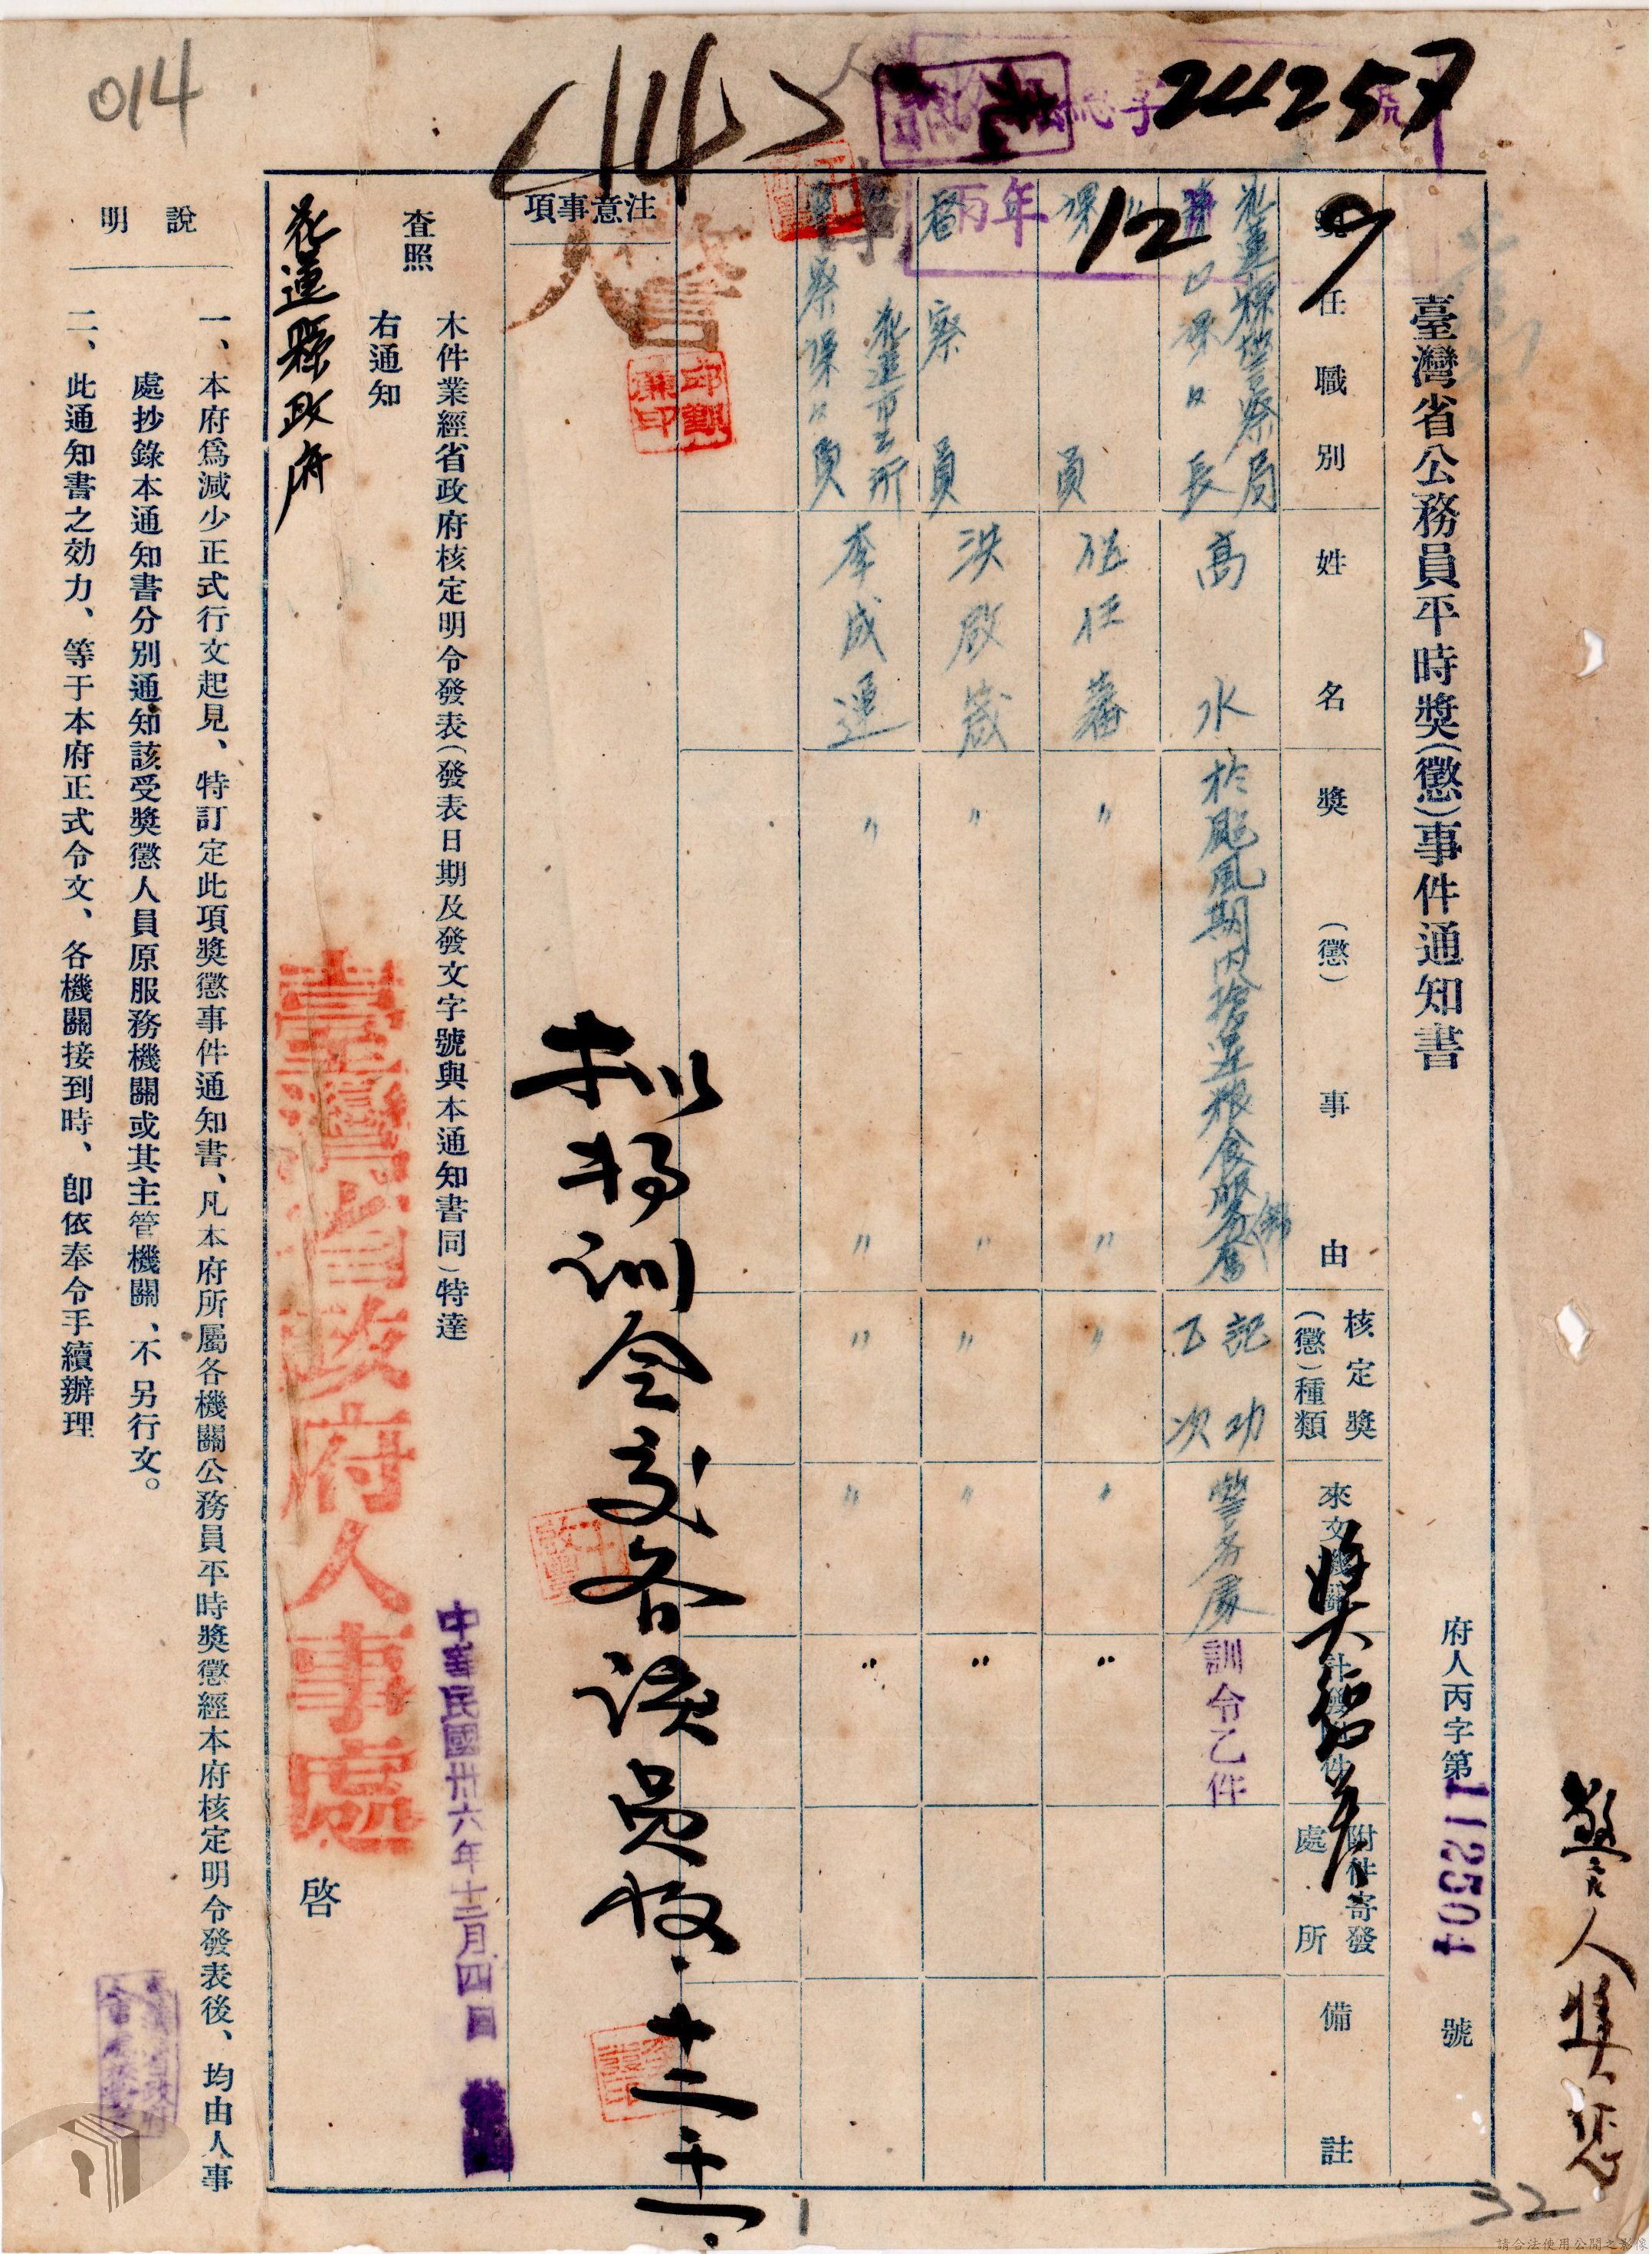 臺灣省公務員平時獎(懲)事件通知書
府人丙字第112504號
現任職別
姓名
獎(懲)事由
核定獎(懲)種類
來文機關
附件寄發處所
備註
花蓮縣警察局
課長
高水
於颱風期內搶運糧食服務
記功乙次
警務處
訓令乙件
課員
蕃
〃
〃
〃
〃
〃
督察員
洪啟崴
〃
〃
〃
〃
〃
花蓮市公所
課員
李成運
〃
〃
〃
〃
〃
注意事項
擬將訓令交各該員收
十二、十一
本件業經省政府核定明令發表(發表日期及發文字號與本通知書同)特達
查照
右通知
花蓮縣政府
臺灣省政府人事處
啓
中華民國卅六年十二月四日
說明
一、本府爲減少正式行文起見、特訂定此項獎懲事件通知書、凡本府所屬各機關公務員平時獎懲經本府核定明令發表後、均由人事
處抄錄本通知書分別通知該受獎懲人員原服務機關或其主管機關、不另行文。
二、此通知書之効力、等于本府正式令文、各機關接到時、卽依奉令手續辦理
014
<14>
24257
12 9
年
號
警
人
警人獎懲
32
1
請合法使用公開之影像